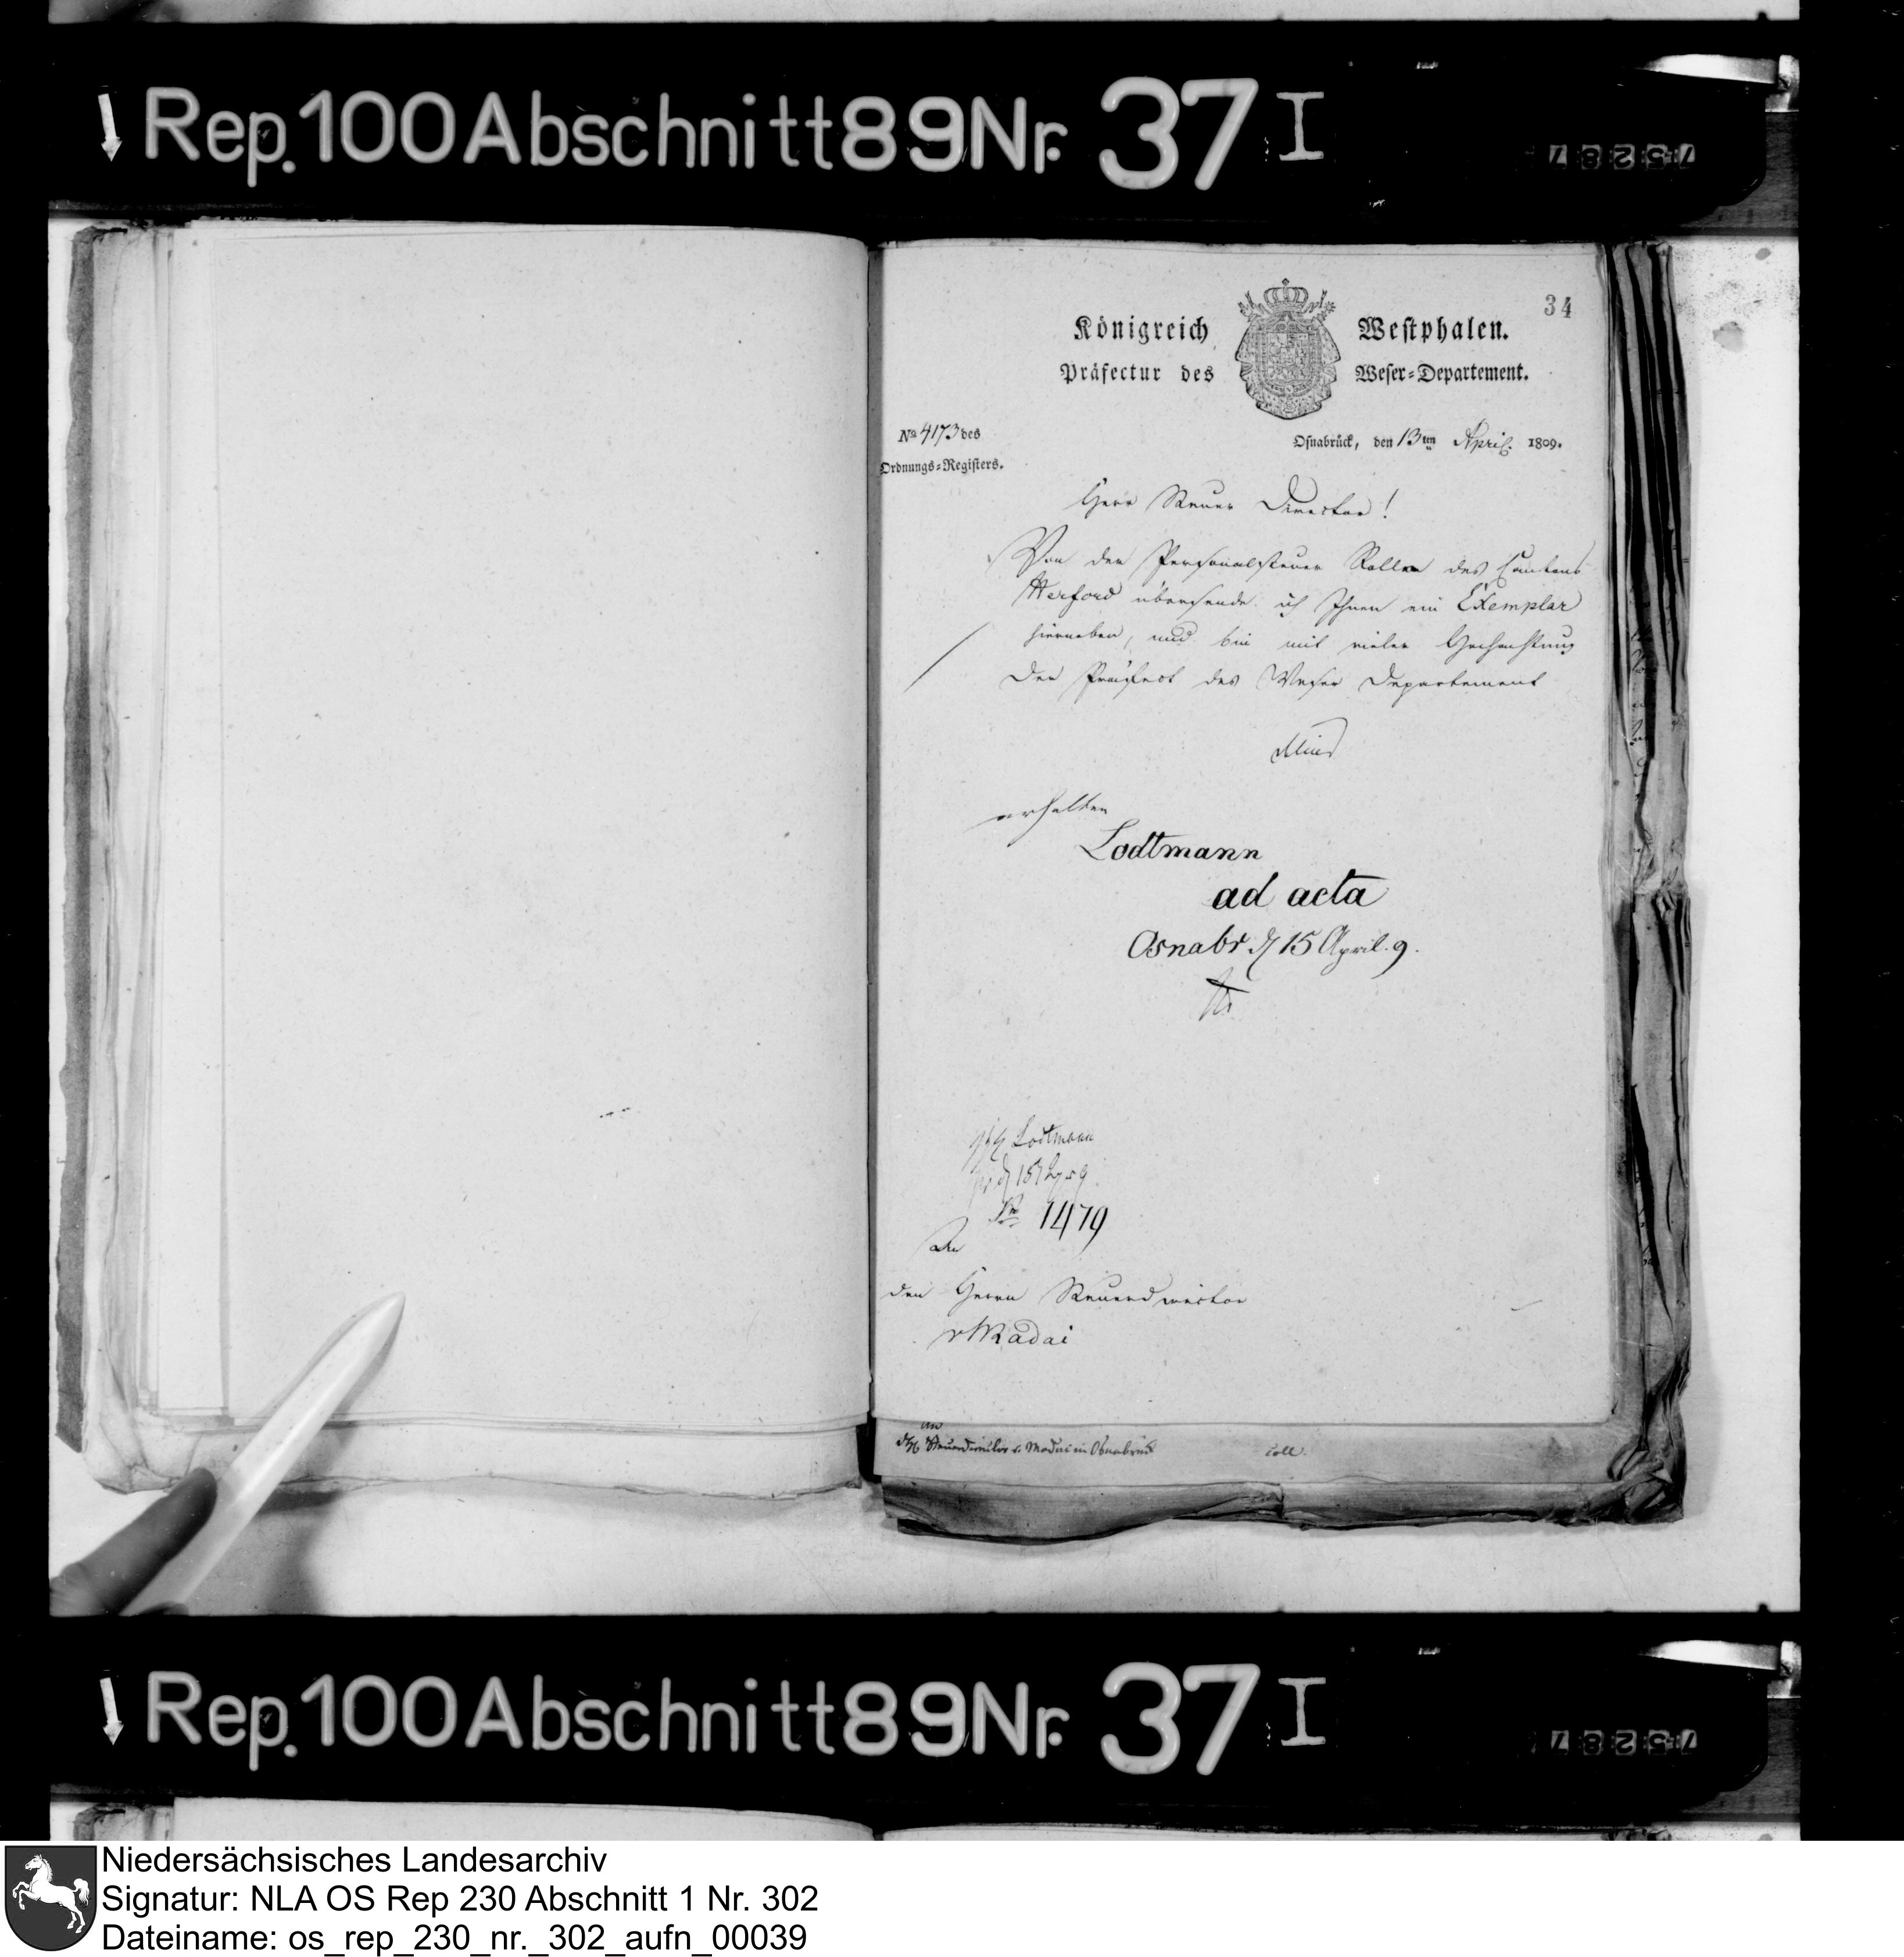 Rep. 100 Abschnitt 89 Nr. 37 I
75287
34
Königreich Westphalen.
Präfectur des Weser-Departement.
No 4173 des
Ordnungs-Registers.
Osnabrück, den 13ten April. 1809.
Herr Steuer Director!
Von den Personalsteuer Rollen des Cantons
Herford übersende ich Ihnen ein Exemplar
hierneben, und bin mit vieler Hochachtung
Der Präfect des Weser Departement
erhalten
Lodtmann
ad acta
Osnabr d 15 April. 9.
Lodtmann
No 1479
An
den Herrn Steuerdirector
v Madai
an
Steuerdirector v. Madai in Osnabrück
Coll.
Rep. 100 Abschnitt 89 Nr. 37 I
75287
Niedersächsisches Landesarchiv
Signatur: NLA OS Rep 230 Abschnitt 1 Nr. 302
Dateiname: os_rep_230_nr._302_aufn_00039